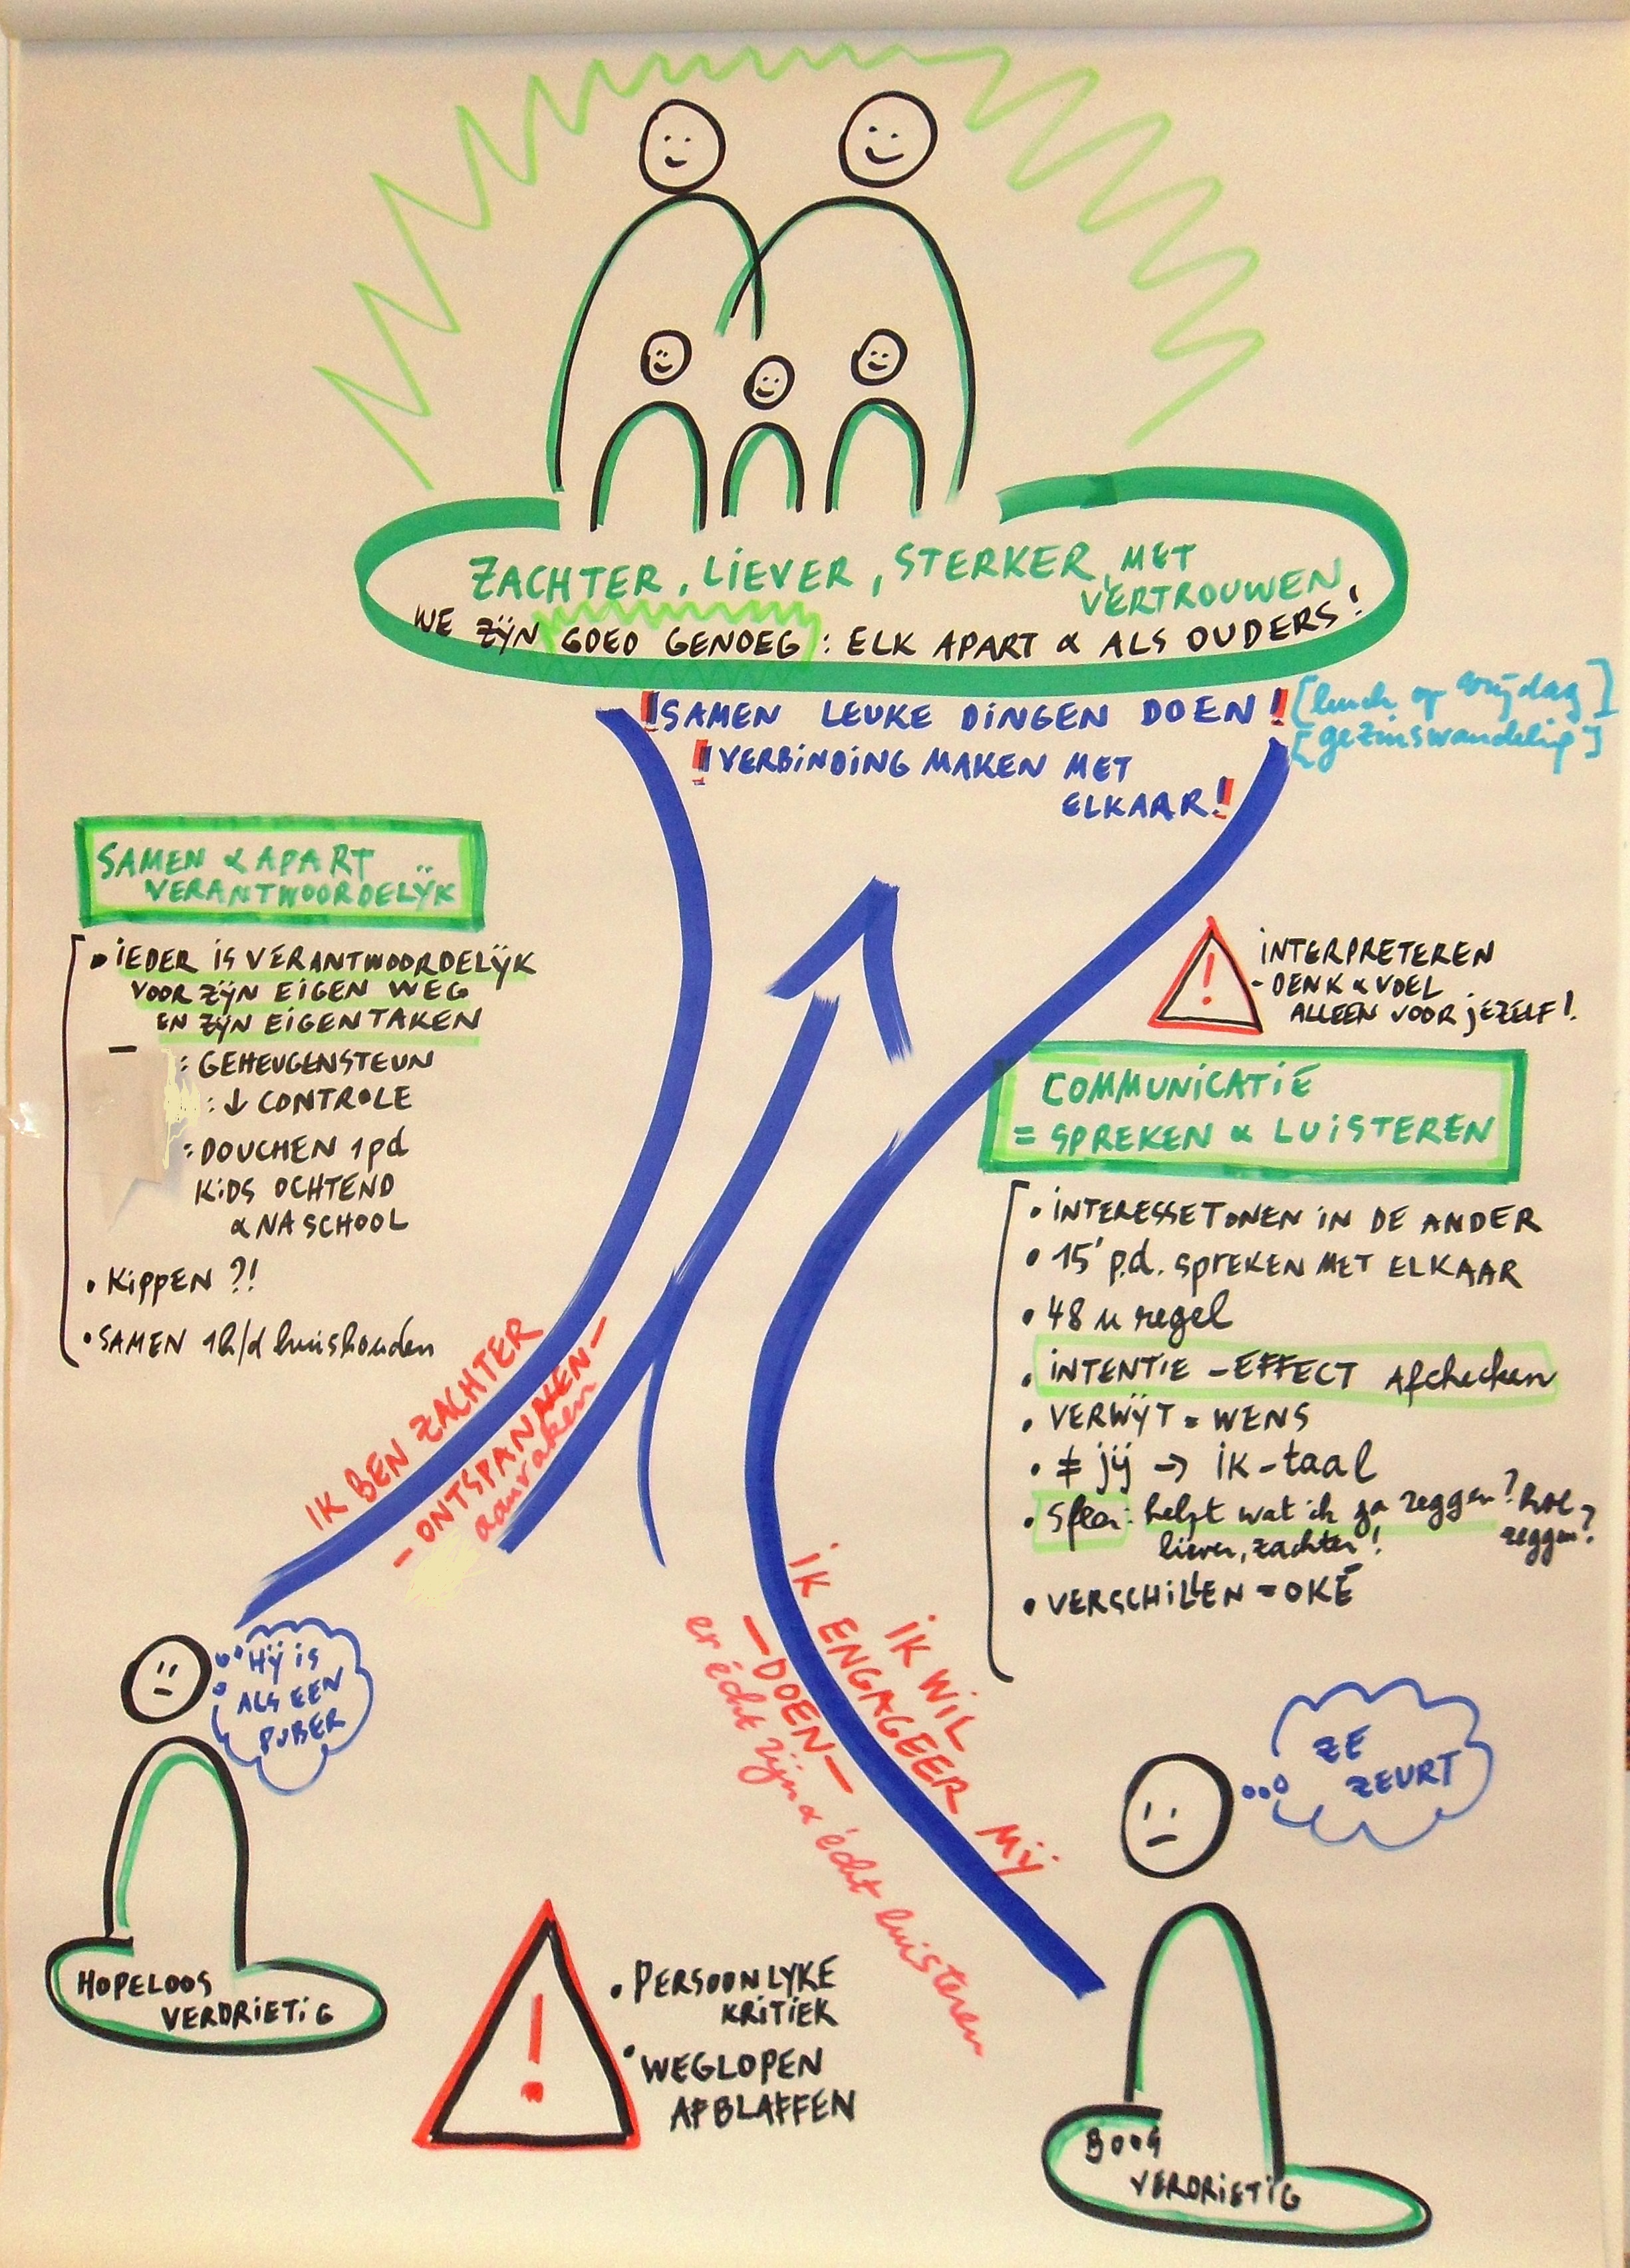 ZACHTER, LIEVER, STERKER, MET
VERTROUWEN
WE ZIJN GOED GENOEG: ELK APART & ALS OUDERS!
!SAMEN LEUKE DINGEN DOEN!
[lunch op vrijdag]
[gezinswandeling]
!VERBINDING MAKEN MET
ELKAAR!
SAMEN & APART
VERANTWOORDELIJK
• IEDER IS VERANTWOORDELIJK
VOOR ZIJN EIGEN WEG
EN ZIJN EIGEN TAKEN
: GEHEUGENSTEUN
: ↓ CONTROLE
: DOUCHEN 1pd
KIDS OCHTEND
& NA SCHOOL
• KIPPEN ?!
• SAMEN 1h/d huishouden
INTERPRETEREN
- DENK & VOEL
ALLEEN VOOR JEZELF!
COMMUNICATIE
= SPREKEN & LUISTEREN
• INTERESSE TONEN IN DE ANDER
• 15' p.d. SPREKEN MET ELKAAR
• 48 u regel
• INTENTIE - EFFECT Afchecken
• VERWIJT = WENS
• ≠ jij → IK-taal
• Sfeer: helpt wat ik ga zeggen? Hoe zeggen?
liever, zachter!
• VERSCHILLEN = OKÉ
IK BEN ZACHTER
- ONTSPANNEN -
aanraken
IK WIL
IK ENGAGEER MIJ
- DOEN -
er écht zijn & écht luisteren
HIJ IS
ALS EEN
PUBER
HOPELOOS
VERDRIETIG
• PERSOONLYKE
KRITIEK
• WEGLOPEN
AFBLAFFEN
ZE
ZEURT
BOOS
VERDRIETIG